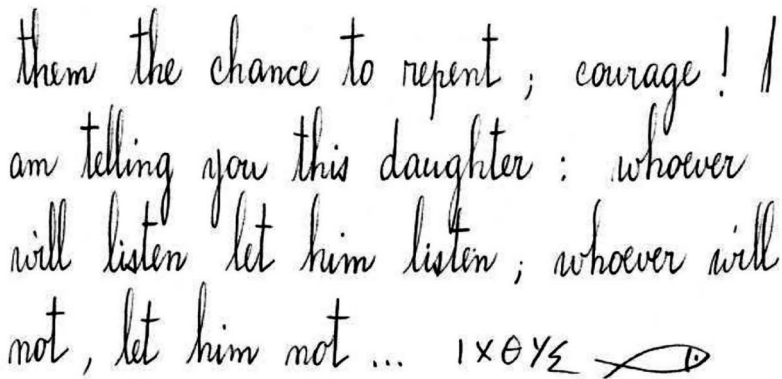 them the chance to repent ; courage ! I
am telling you this daughter : whoever
will listen let him listen ; whoever will
not , let him not ... ΙΧΘΥΣ